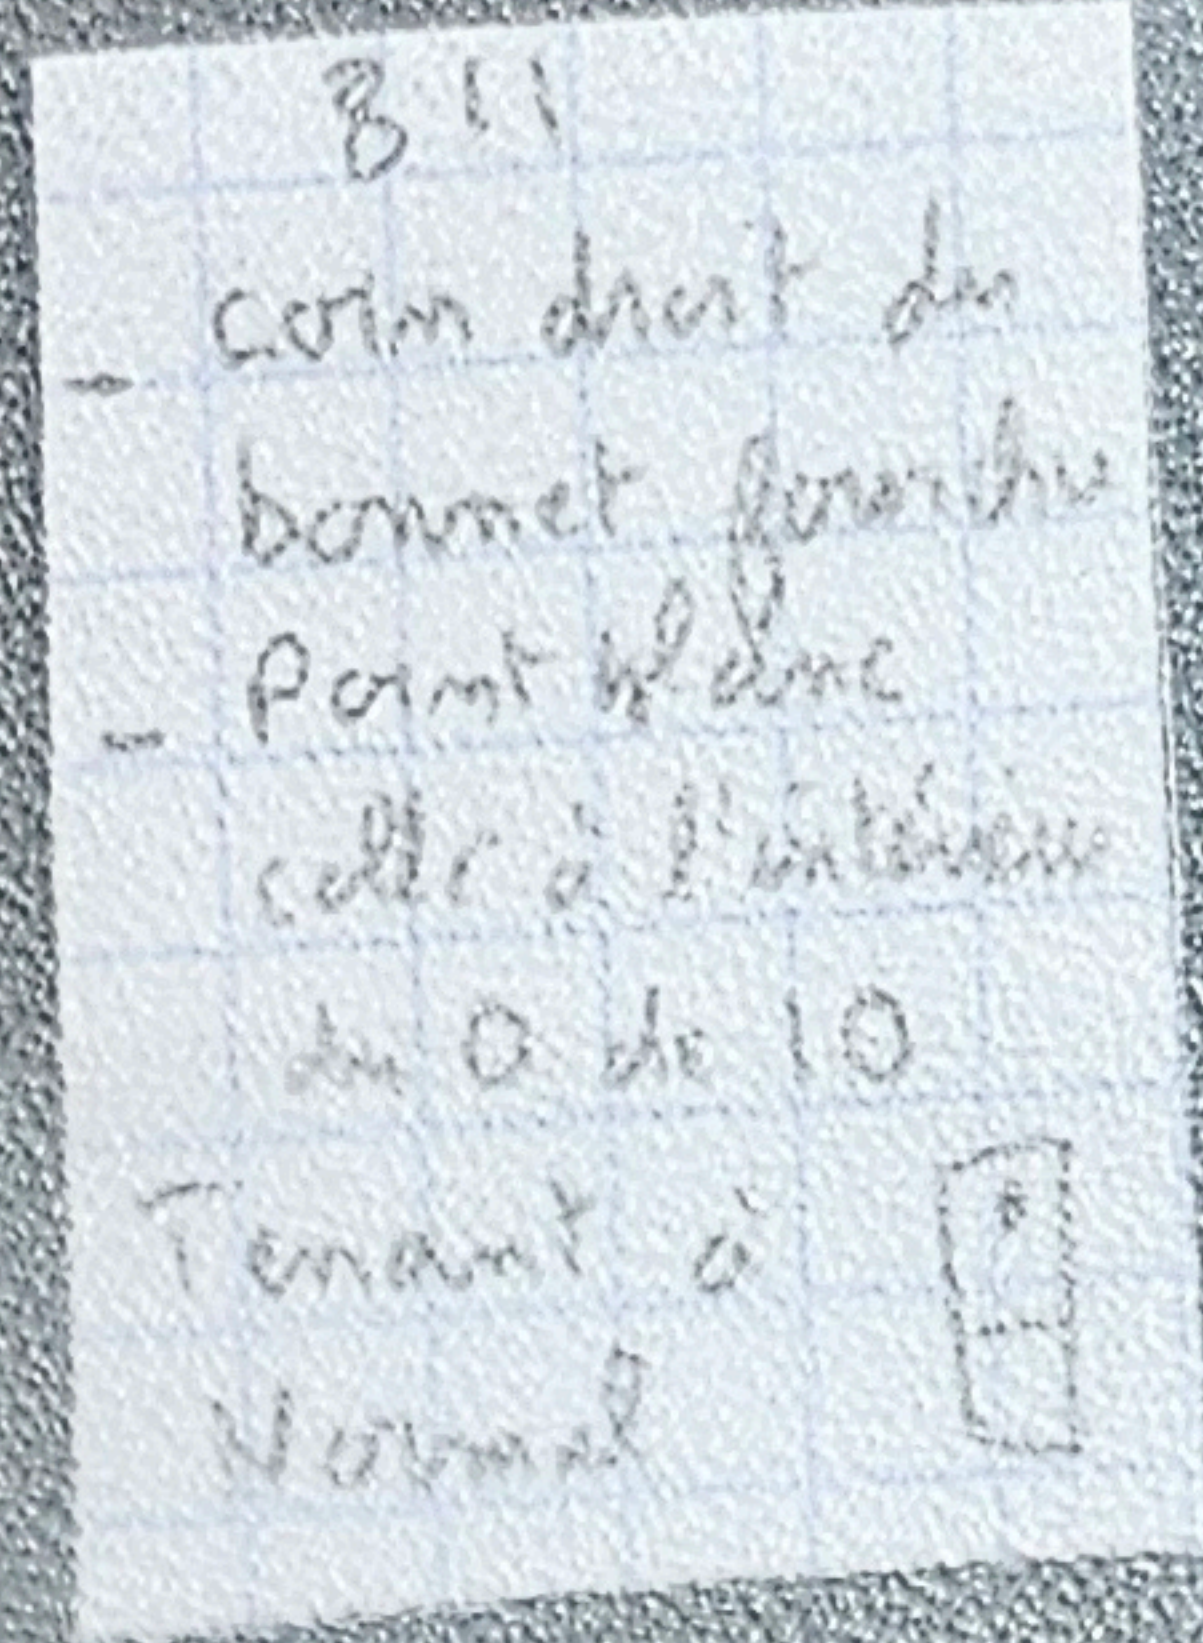 B 11
- coin droit du
bonnet fourchu
- Point blanc
collé à l'intérieur
du 0 de 10
Tenant à
Normal